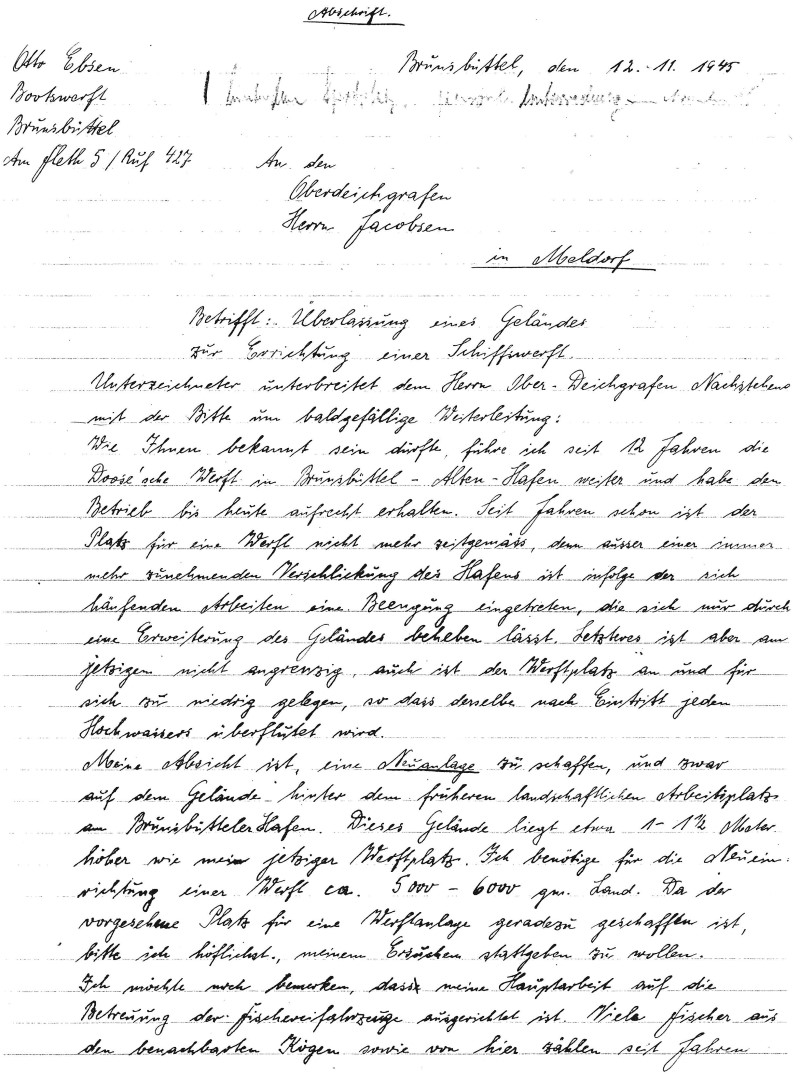 Abschrift.
Otto Ebsen
Brunsbüttel, den 12.11.1945
Bootswerft
Brunsbüttel
Am Fleth 5 / Ruf 427
An den
Oberdeichgrafen
Herrn Jacobsen
in Meldorf
Betrifft: Überlassung eines Geländes
zur Errichtung einer Schiffswerft.
Unterzeichneter unterbreitet dem Herrn Ober-Deichgrafen Nachstehend
mit der Bitte um baldgefällige Weiterleitung:
Wie Ihnen bekannt sein dürfte, führe ich seit 12 Jahren die
Doose'sche Werft in Brunsbüttel - Alten-Hafen weiter und habe den
Betrieb bis heute aufrecht erhalten. Seit Jahren schon ist der
Platz für eine Werft nicht mehr zeitgemäss, denn ausser einer immer
mehr zunehmenden Verschlickung des Hafens ist infolge der sich
häufenden Arbeiten eine Beengung eingetreten, die sich nur durch
eine Erweiterung des Geländes beheben lässt. Letzteres ist aber am
jetzigen nicht angrenzig, auch ist der Werftplatz an und für
sich zu niedrig gelegen, so dass derselbe nach Eintritt jeden
Hochwassers überflutet wird.
Meine Absicht ist, eine Neuanlage zu schaffen, und zwar
auf dem Gelände hinter dem früheren landschaftlichen Arbeitsplatz
am Brunsbütteler Hafen. Dieses Gelände liegt etwa 1 - 1½ Meter
höher wie mein jetziger Werftplatz. Ich benötige für die Neuein-
richtung einer Werft ca. 5000 - 6000 qm. Land. Da der
vorgesehene Platz für eine Werftanlage geradezu geschaffen ist,
bitte ich höflichst, meinem Ersuchen stattgeben zu wollen.
Ich möchte noch bemerken, dass meine Hauptarbeit auf die
Betreuung der Fischereifahrzeuge ausgerichtet ist. Viele Fischer aus
den benachbarten Kögen sowie von hier zählen seit Jahren